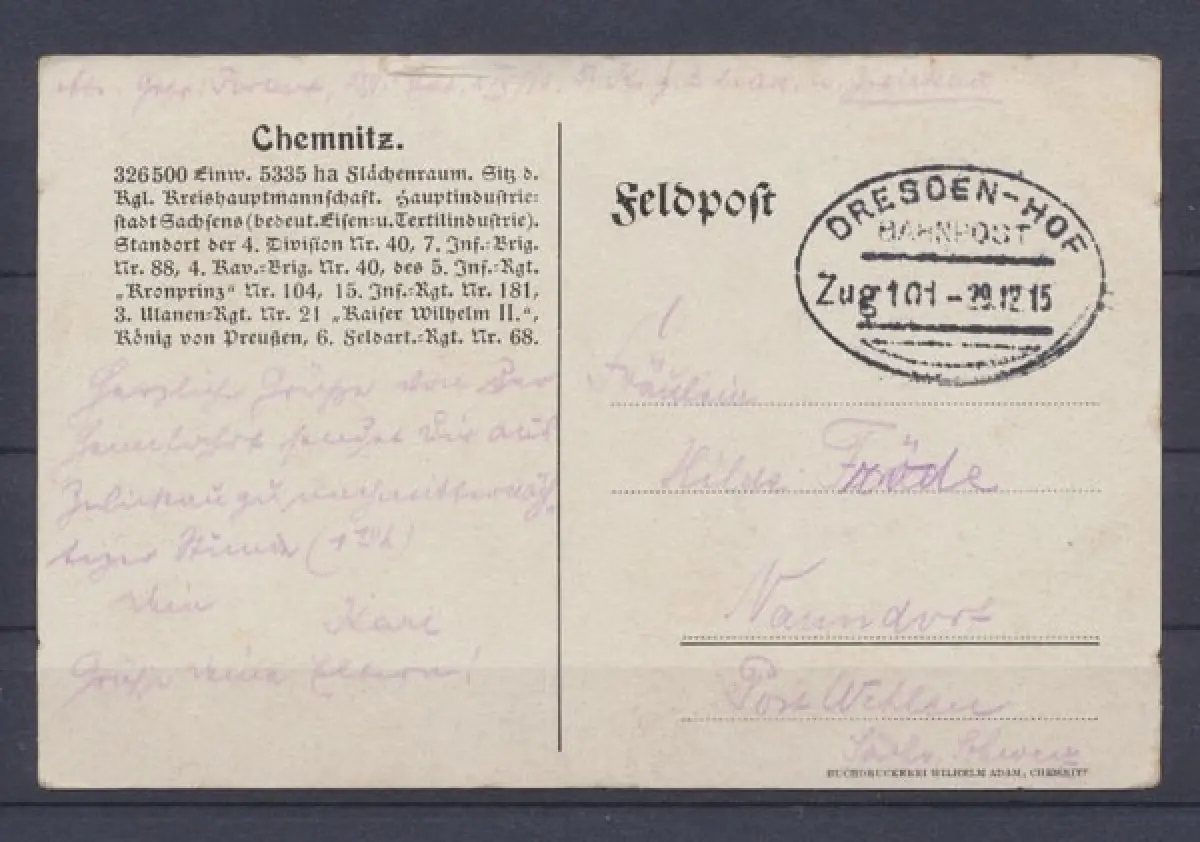 Chemnitz.
326500 Einw. 5335 ha Flächenraum. Sitz d.
Kgl. Kreishauptmannschaft. Hauptindustrie-
stadt Sachsens (bedeut. Eisen- u. Textilindustrie).
Standort der 4. Division Nr. 40, 7. Inf.-Brig.
Nr. 88, 4. Kav.-Brig. Nr. 40, des 5. Inf.-Rgt.
„Kronprinz“ Nr. 104, 15. Inf.-Rgt. Nr. 181,
3. Ulanen-Rgt. Nr. 21 „Kaiser Wilhelm II.“,
König von Preußen, 6. Feldart.-Rgt. Nr. 68.
Herzliche Grüße von der
sendet Dir aus
Zwickau zu nachmitternäch-
tiger Stunde
Dein Karl
Grüße Deine Eltern!
Feldpost
DRESDEN-HOF
BAHNPOST
Zug 101 - 29.12.15
Fräulein
Hilde Fröde
Naundorf
Post Wehlen
Sächs. Schweiz
BUCHDRUCKEREI WILHELM ADAM, CHEMNITZ